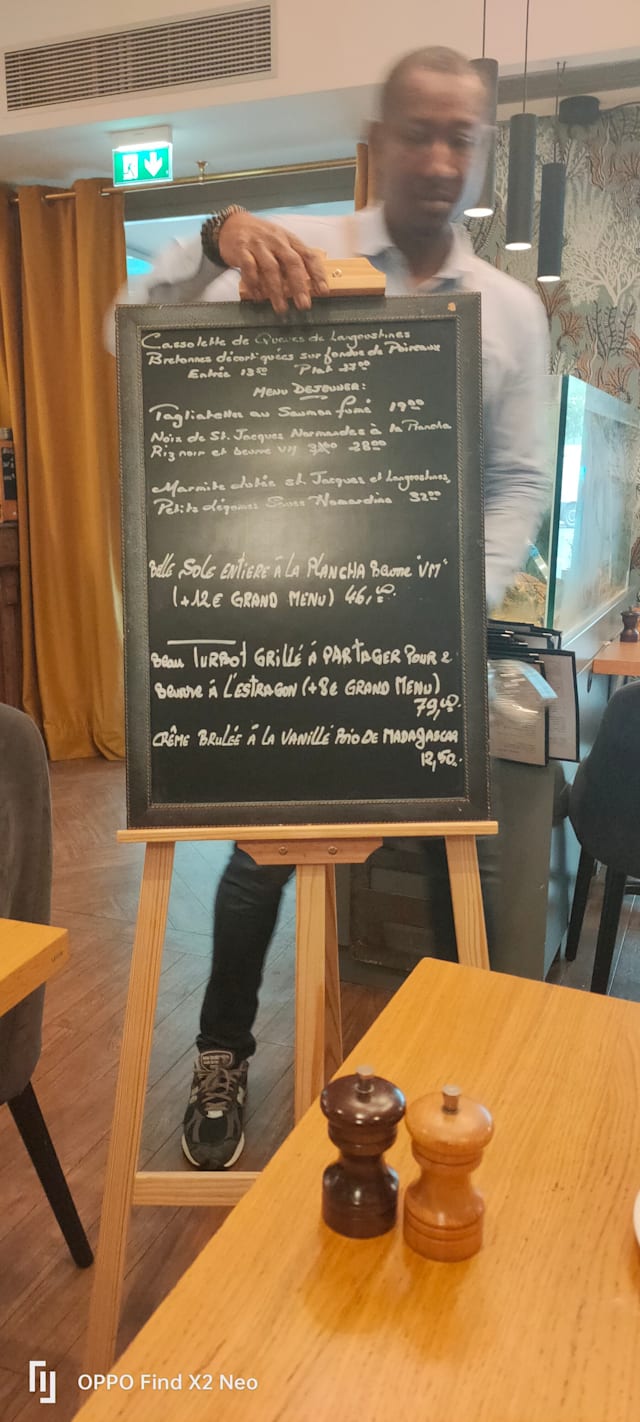 Cassolette de Queues de Langoustines
Bretonnes décortiquées sur fondue de Poireaux
Entrée 13.00 Plat 23.00
MENU DEJEUNER:
Tagliatelles au Saumon fumé 19.00
Noix de St. Jacques Normandes à la Plancha
Riz noir et beurre VM 28.00
Marmite lutée st Jacques et Langoustines,
Petits légumes Sauce Normandine 32.00
BELLE SOLE ENTIERE À LA PLANCHA BEURRE "VM"
(+12€ GRAND MENU) 46,00.
BEAU TURBOT GRILLÉ À PARTAGER POUR 2
BEURRE À L'ESTRAGON (+8€ GRAND MENU)
79,00.
CRÊME BRULÉE À LA VANILLE DE MADAGASCAR
12,50.
OPPO Find X2 Neo